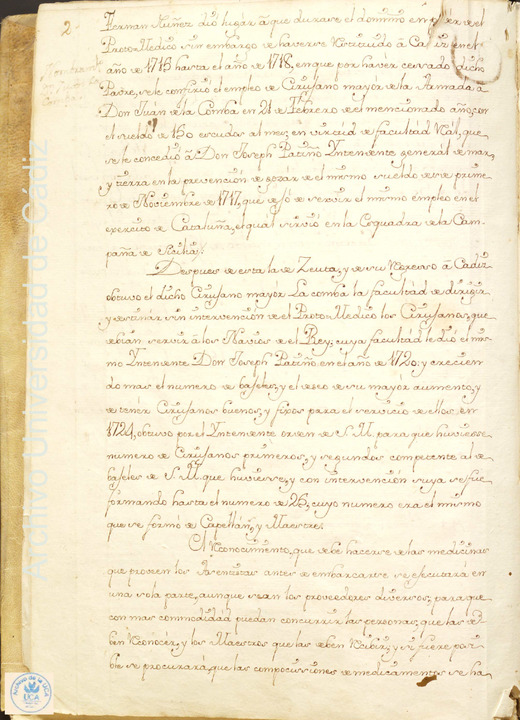 2
Fernan Nuñez dió lugár á que durase el dominio en poder de el
Proto-Medico sin embargo de haverse Nducido á Cadiz en el
año de 1715 hasta el año de 1718, en que por havér cesado dicho
Padre, se le confirió el empleo de Cirujano mayor de la Armada, á
Don Juán de la Comba en 21 de Febrero de el mencionado año, con
el sueldo de 150 escudos al mes, en virtúd de facultád Rªl, que
se le concedió á Don Joseph Patiño Yntendente general de mar,
y tierra en la prevención de gozár de el mismo sueldo desde prime-
ro de Noviembre de 1717, que dejó de servir el mismo empleo en el
exercito de Cataluña, el qual sirvió en la Esquadra de la Cam-
paña de Sicilia.
Despues de esta la de Zeuta, y de su Regreso á Cadiz
obtuvo el dicho Cirujano mayor La comba la facultád de dirigir,
y destinár sin intervención de el Proto-Medico los Cirujanos, que
debian servir á los Navios de el Rey; cuya facultád le dió el mis-
mo Yntendente Don Joseph Patiño en el año de 1720: y crecien-
do mas el numero de bageles, y el deseo de su mayor aumento, y
de tenér Cirujanos buenos, y fixos para el servicio de ellos, en
1724, obtuvo por el Yntendente orden de S. M. para que huviesse
numero de Cirujanos primeros, y segundos competente al de
bageles de S. M. que huviesse, y con intervención suya se fue
formando hasta el numero de 26, cuyo numero era el mismo
que se formó de Capellán, y Maestre.
El Reconocimiento, que debe hacerse de las medicinas
que proveen los Asentistas antes de embarcarse se ejecutará en
una sola parte, aunque sean los proveedores diversos; para que
con mas commodidád puedan concurrir las personas, que las de-
ben Reconocér, y los Maestros que las deben Recibir, y si fuere posi-
ble se procurará, que las composiciones de medicamentos se ha-
Archivo Universidad de Cádiz
Archivo de la UCA
UCA